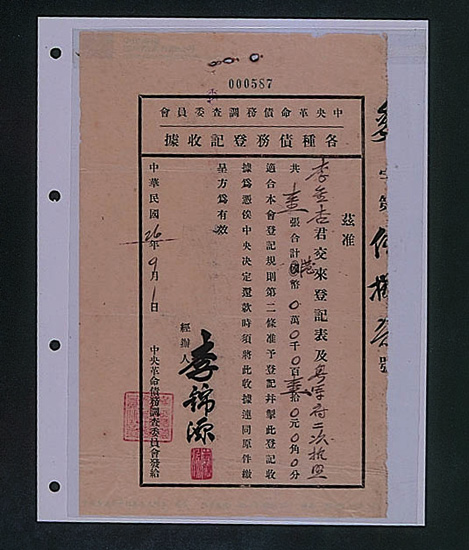 000587
中央革命債務調查委員會
各種債務登記收據
茲准
李 君交來登記表及
共 張合計 港幣〇萬〇千〇百 拾〇元〇角〇分
適合本會登記規則第二條准予登記并掣此登記收
據爲憑俟中央決定還款時須將此收據連同原件繳
呈方爲有效
經辦人 李錦源
中華民國26年9月1日
中央革命債務調查委員會發給